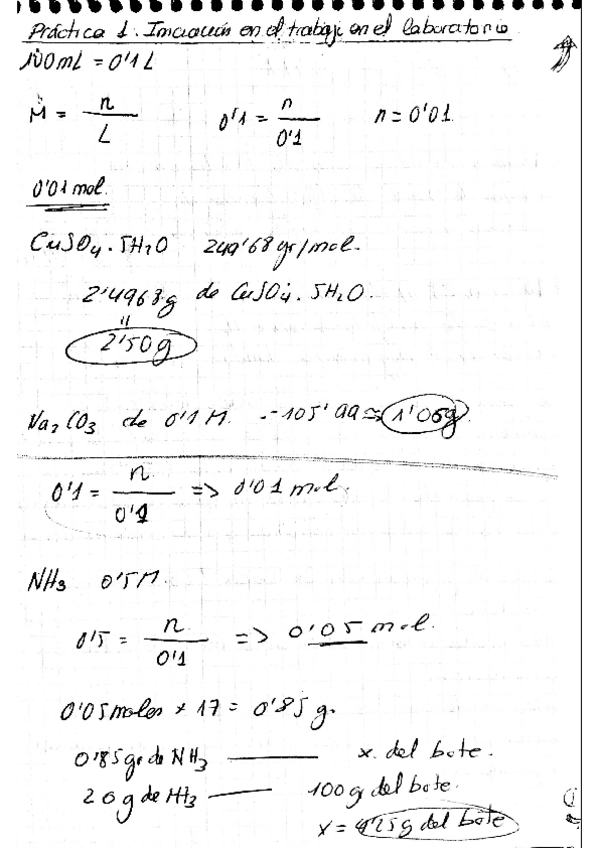 Práctica 1. Iniciación en el trabajo en el laboratorio
100mL = 0'1L
M = n / L    0'1 = n / 0'1    n = 0'01
0'01 mol.
CuSO4 · 5H2O  249'68 gr/mol.
2'4968g de CuSO4 · 5H2O.
"
2'50g
Na2CO3 de 0'1M. - 105'99 ≈ 1'06g
0'1 = n / 0'1 => 0'01 mol.
NH3 0'5M.
0'5 = n / 0'1 => 0'05 mol.
0'05 moles × 17 = 0'85 g.
0'85 gr de NH3 —— x del bote.
20 g de NH3 —— 100 g del bote.
x = 4'25g del bote